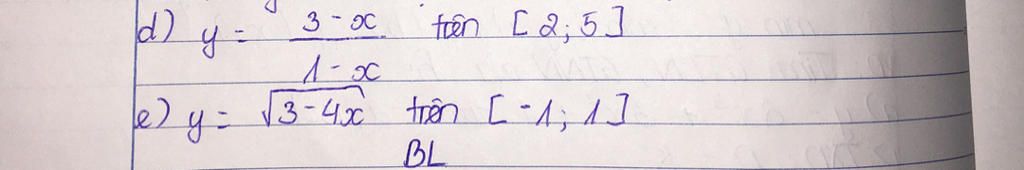 d) y = \frac{3-x}{1-x} trên [2; 5]
e) y = \sqrt{3-4x} trên [-1; 1]
BL